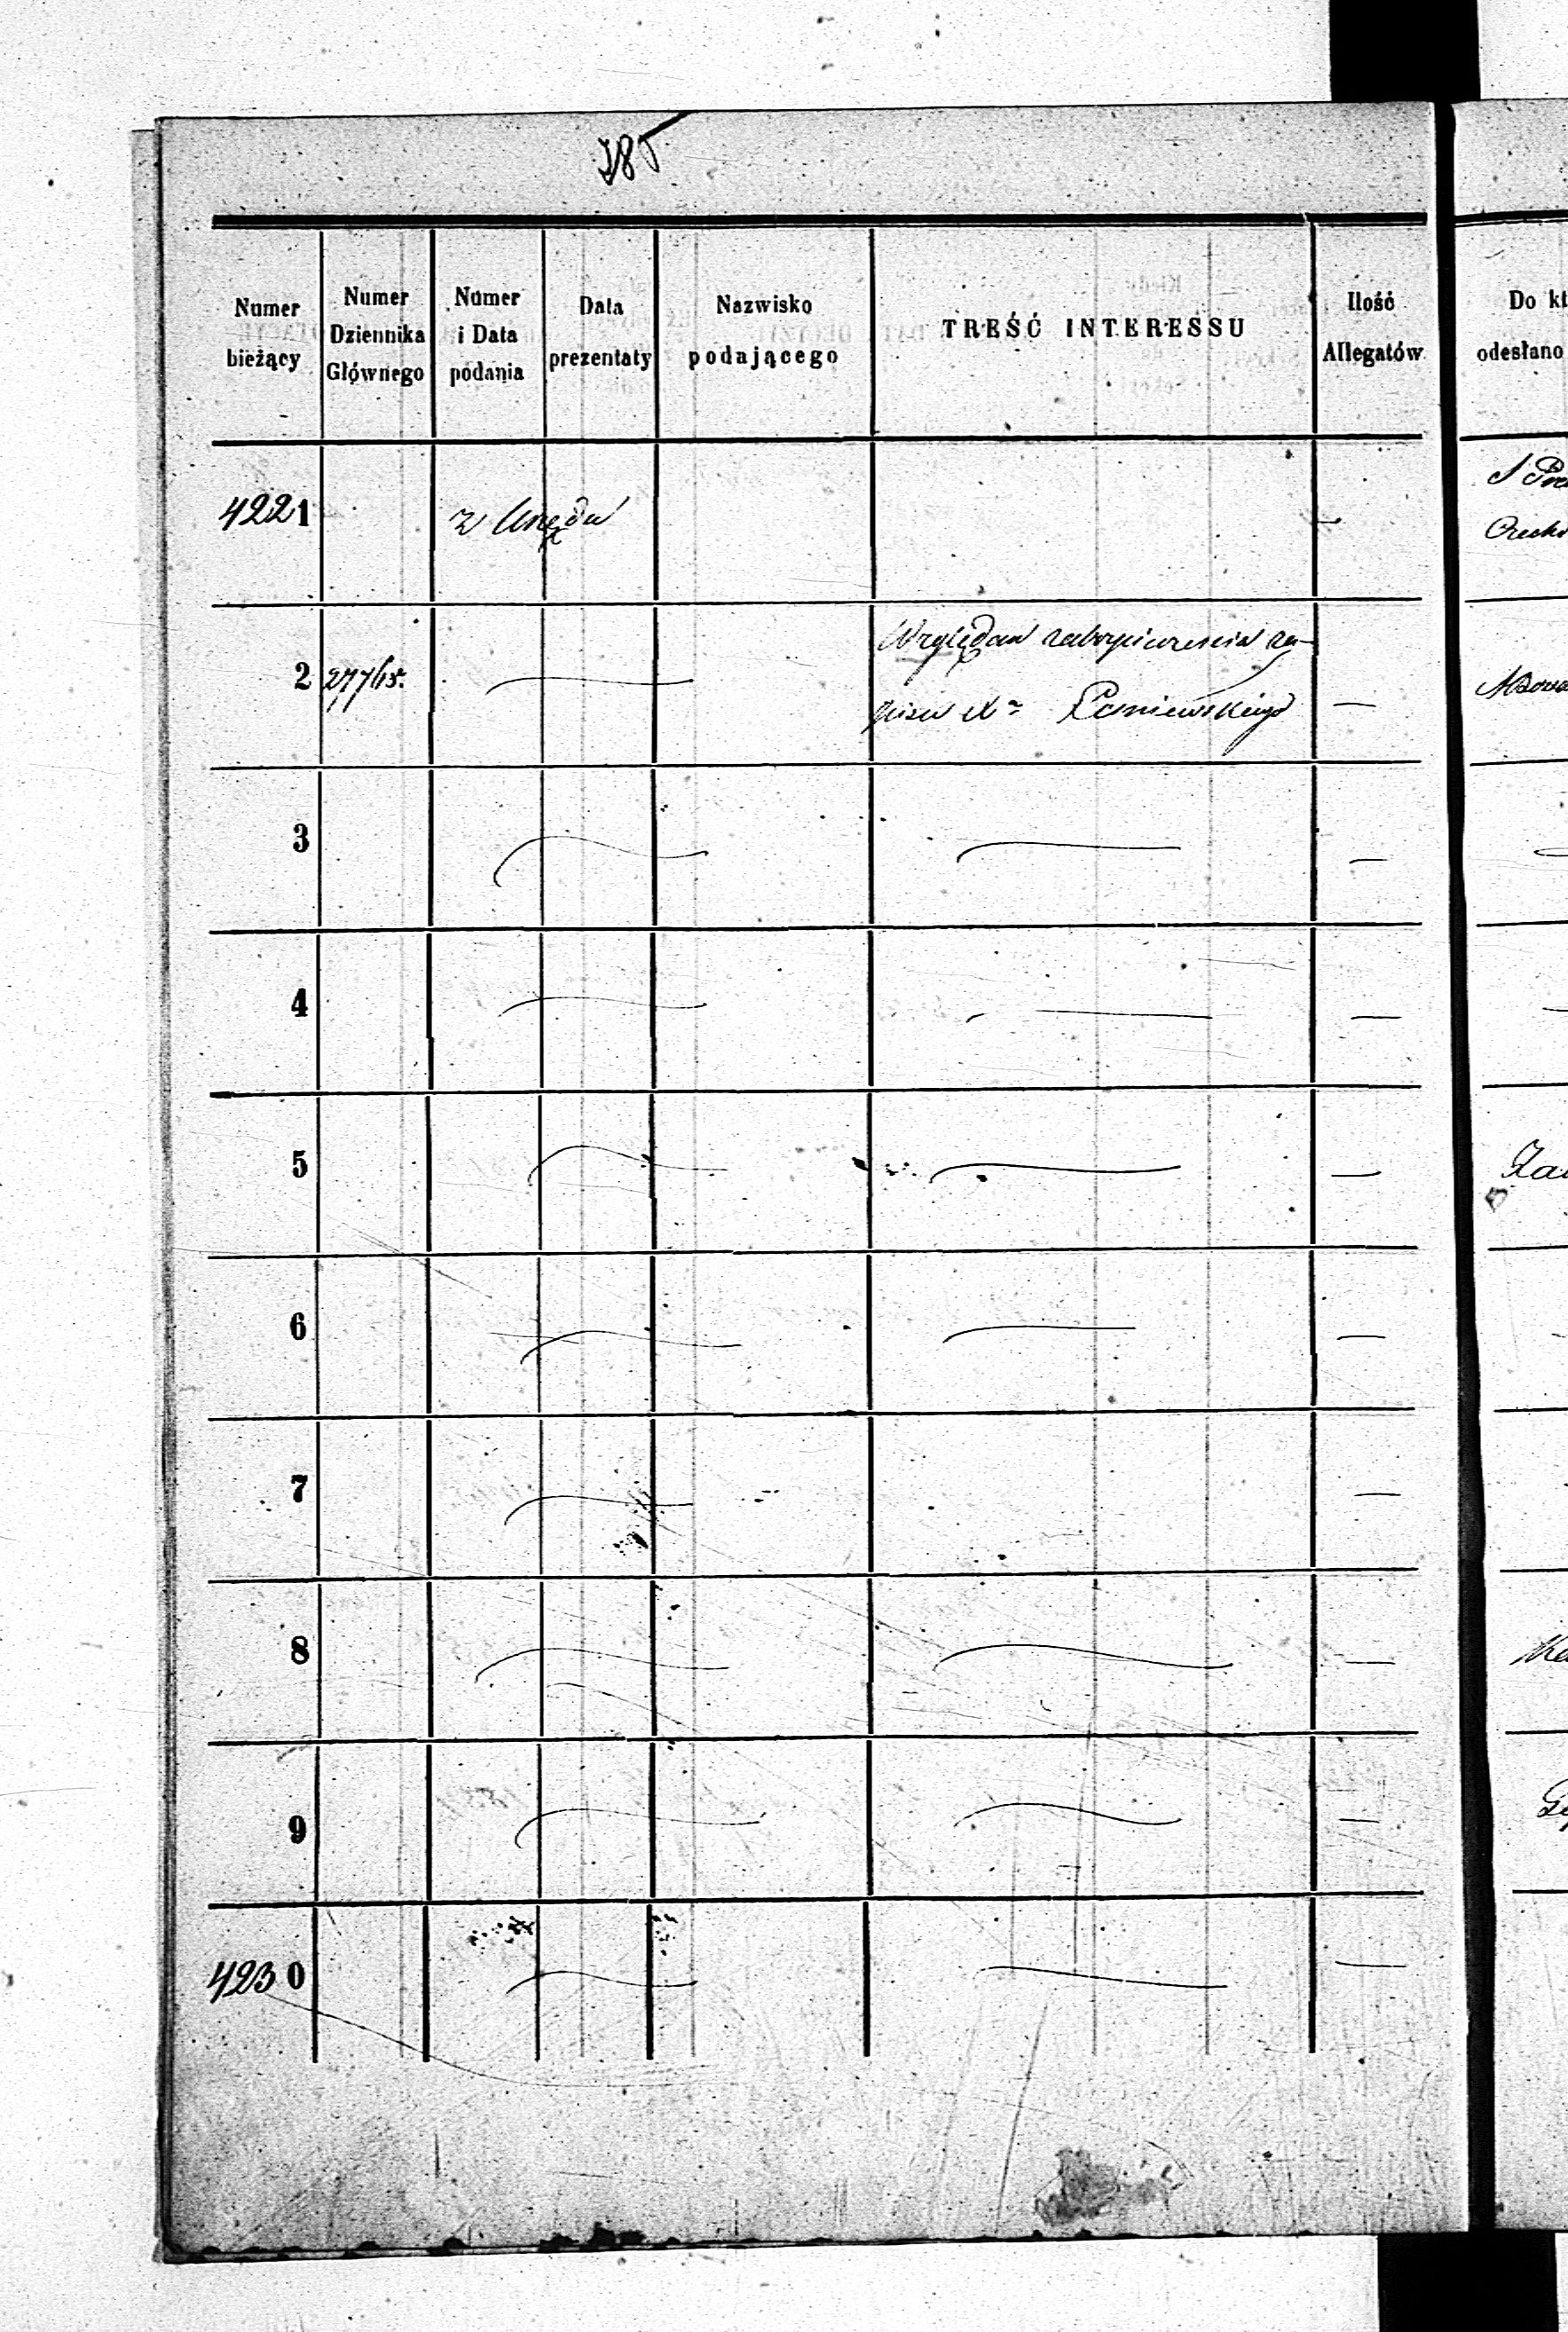 785
Numer
bieżący
Numer
Dziennika
Głównego
Numer
i Data
podania
Data
prezentaty
Nazwisko
podającego
TREŚĆ INTERESSU
Ilość
Allegatów
Do kt
odesłano
4221
z Urzędu
—
2
—
Względem zabezpieczenia za-
pisu
—
3
—
4
—
5
—
6
—
7
—
8
—
9
—
4230
—